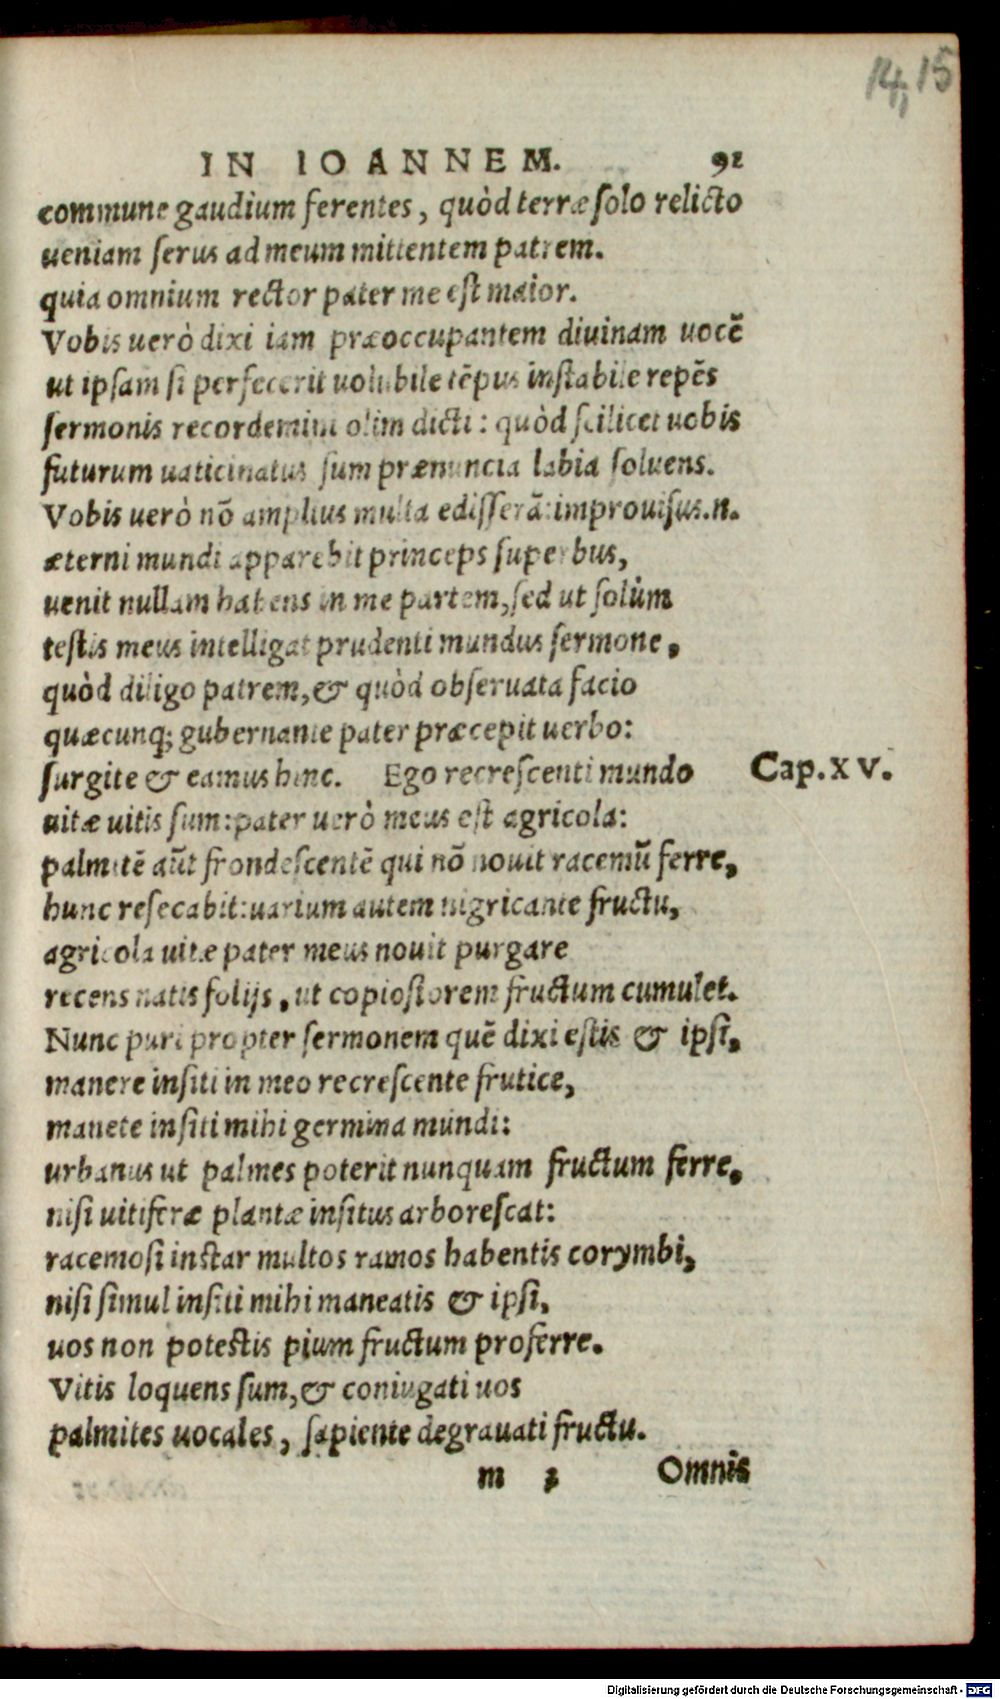 14, 15
IN IOANNEM. 91
commune gaudium ferentes, quòd terræ solo relicto
ueniam serus ad meum mittentem patrem.
quia omnium rector pater me est maior.
Vobis uerò dixi iam præoccupantem diuinam uocē
ut ipsam si perfecerit uolubile tēpus instabile repēs
sermonis recordemini olim dicti: quòd scilicet uobis
futurum uaticinatus sum prænuncia labia soluens.
Vobis uerò nō amplius multa edisserā: improuisus.n.
æterni mundi apparebit princeps superbus,
uenit nullam habens in me partem, sed ut solùm
testis meus intelligat prudenti mundus sermone,
quòd diligo patrem, & quòd obseruata facio
quæcunq; gubernante pater præcepit uerbo:
surgite & eamus hinc. Ego recrescenti mundo Cap. XV.
uitæ uitis sum: pater uerò meus est agricola:
palmitē aūt frondescentē qui nō nouit racemū ferre,
hunc resecabit: uarium autem nigricante fructu,
agricola uitæ pater meus nouit purgare
recens natis folijs, ut copiosiorem fructum cumulet.
Nunc puri propter sermonem quē dixi estis & ipsi,
manere insiti in meo recrescente frutice,
manete insiti mihi germina mundi:
urbanus ut palmes poterit nunquam fructum ferre,
nisi uitiferæ plantæ insitus arborescat:
racemosi instar multos ramos habentis corymbi,
nisi simul insiti mihi maneatis & ipsi,
uos non potestis pium fructum proferre.
Vitis loquens sum, & coniugati uos
palmites uocales, sapiente degrauati fructu.
m 3 Omnis
Digitalisierung gefördert durch die Deutsche Forschungsgemeinschaft - DFG